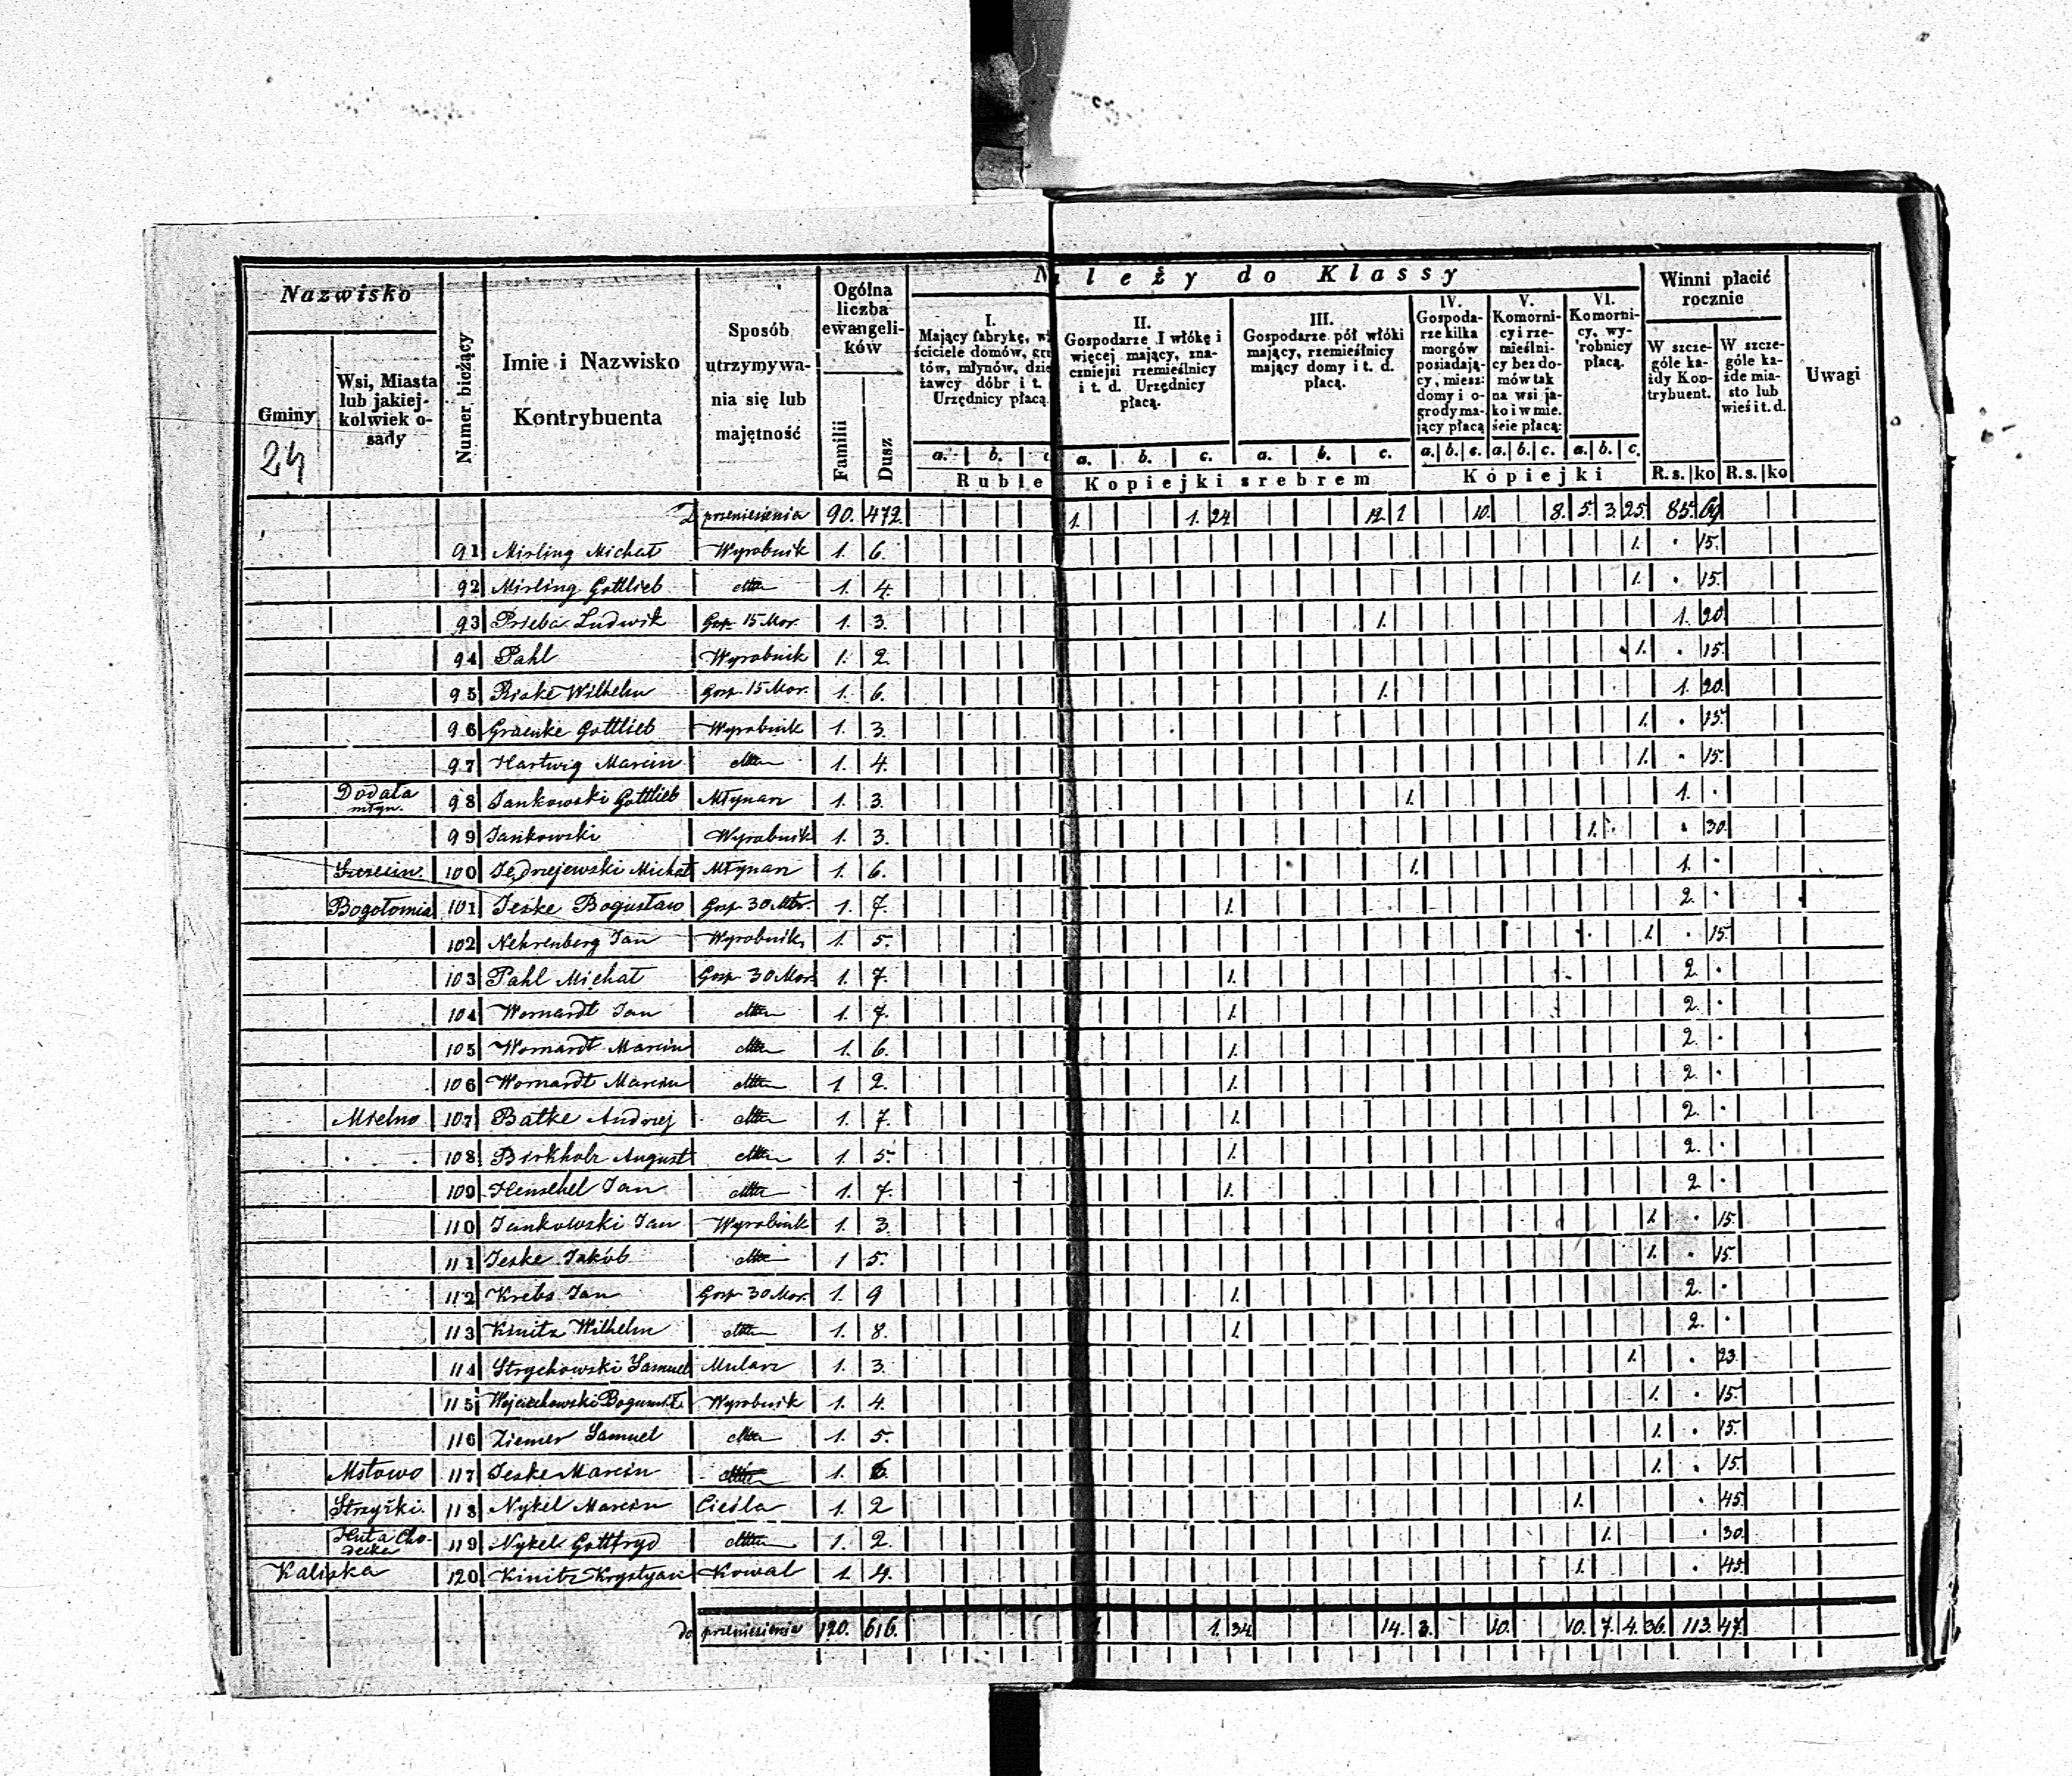 Nazwisko
Gminy
24
Wsi, Miasta lub jakiej-kolwiek o-sady
Numer bieżący
Imie i Nazwisko Kontrybuenta
Sposób utrzymywa-nia się lub majętność
Ogólna liczba ewangeli-ków
Familii
Dusz
Należy do Klassy
I. Mający fabrykę, wł ściciele domów, gru tów, młynów, dzie żawcy dóbr i t. Urzędnicy płacą.
II. Gospodarze I włókę i więcej mający, zna-czniejsi rzemieślnicy i t. d. Urzędnicy płacą.
III. Gospodarze pół włóki mający, rzemieślnicy mający domy i t. d. płacą.
IV. Gospoda-rze kilka morgów posiadają-cy, miesz: domy i o-grody ma-jący płacą
V. Komorni-cy i rze-mieślni-cy bez do-mów tak na wsi ja-ko i w mie. ście płacą:
VI. Komorni-cy, wy-robnicy płacą.
Winni płacić rocznie
W szcze-góle ka-żdy Kon-trybuent.
W szcze-góle ka-żde mia-sto lub wieś i t. d.
Uwagi
a. b. c a. b. c. a. b. c. a. b. c. a. b. c. a. b. c.
Ruble Kopiejki srebrem Kópiejki R.s. ko R.s. ko
Z przeniesienia 90. 472. 1. 1. 24 12. 1 10. 8. 5. 3. 25. 85. 69
91 Misling Michał Wyrobnik 1. 6. 1. . 15.
92 Misling Gottlieb dtto 1. 4. 1. . 15.
93 Prieba Ludwik Gosp. 15 Mor. 1. 3. 1. 1. 20.
94 Pahl Wyrobnik 1. 2. 1. . 15.
95 Riske Wilhelm Gosp. 15 Mor. 1. 6. 1. 1. 20.
96 Graenke Gottlieb Wyrobnik 1. 3. 1. . 15.
97 Hartwig Marcin dtto 1. 4. 1. . 15.
Dodała młyn. 98 Jankowski Gottlieb Młynarz 1. 3. 1. 1. .
99 Jankowski Wyrobnik 1. 3. 1. . 30.
Szczecin. 100 Jędrzejewski Michał Młynarz 1. 6. 1. 1. .
Bogołomia 101 Jeske Bogusław Gosp. 30 Mor. 1. 7. 1. 2. .
102 Nehrenberg Jan Wyrobnik 1. 5. 1. . 15.
103 Pahl Michał Gosp. 30 Mor. 1. 7. 1. 2. .
104 Wornardt Jan dtto 1. 7. 1. 2. .
105 Wornardt Marcin dtto 1. 6. 1. 2. .
106 Wornardt Marcin dtto 1 2. 1. 2. .
Mielno 107 Batke Andrzej dtto 1. 7. 1. 2. .
108 Birkholz August dtto 1. 5. 1. 2. .
109 Henschel Jan dtto 1. 7. 1. 2 .
110 Jankowski Jan Wyrobnik 1. 3. 1. . 15.
111 Jeske Jakób dtto 1 5. 1. . 15.
112 Krebs Jan Gosp. 30 Mor. 1. 9 1. 2. .
113 Kinitz Wilhelm dtto 1. 8. 1. 2. .
114 Strychowski Samuel Mularz 1. 3. 1. . 23.
115 Wojciechowski Bogumił Wyrobnik 1. 4. 1. . 15.
116 Ziemer Samuel dtto 1. 5. 1. . 15.
Mstowo 117 Jeske Marcin dtto 1. 6. 1. . 15.
Strzyżki 118 Nykel Marcin Cieśla 1. 2 1. . 45.
Huta Cho-decka 119 Nykel Gottfryd dtto 1. 2. 1. . 30.
Kaliska 120 Kinitz Krystyan Kowal 1. 4. 1. . 45.
do przeniesienia 120. 616. 1. 1. 34 14. 3. 10. 10. 7. 4. 36. 113. 47.